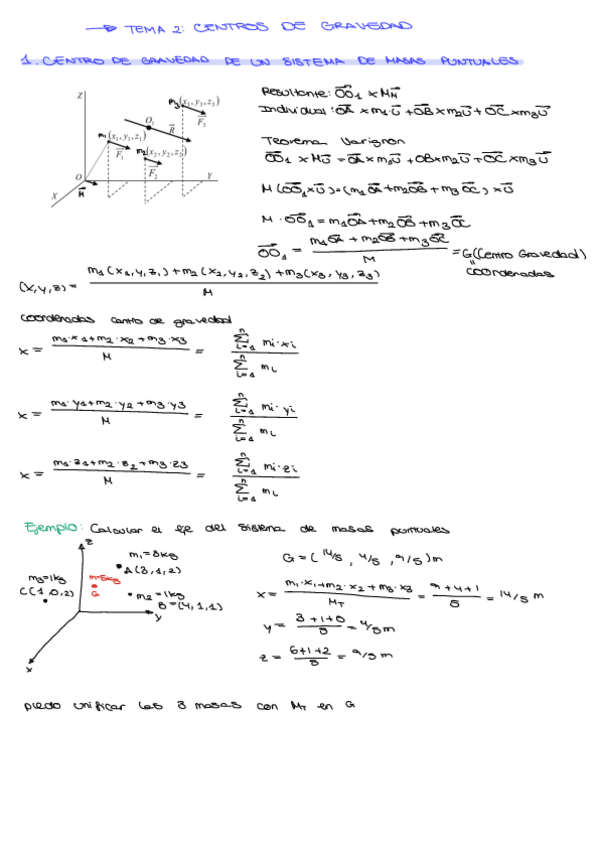 → TEMA 2: CENTROS DE GRAVEDAD
1. CENTRO DE GRAVEDAD DE UN SISTEMA DE MASAS PUNTUALES
Resultante: OO₁ × Mū
Individual: OA × m₁ū + OB × m₂ū + OC × m₃ū
Teorema Varignon
OO₁ × Mū = OA × m₁ū + OB × m₂ū + OC × m₃ū
M (OO₁ × ū) = (m₁ OA + m₂ OB + m₃ OC) × ū
M · OO₁ = m₁ OA + m₂ OB + m₃ OC
OO₁ = (m₁ OA + m₂ OB + m₃ OC) / M = G (Centro Gravedad)
" coordenadas
Z
m₃ (x₃, y₃, z₃)
F₃
O₁
R
m₁ (x₁, y₁, z₁)
F₁
m₂ (x₂, y₂, z₂)
F₂
O
Y
X
M
(x, y, z) = m₁ (x₁, y₁, z₁) + m₂ (x₂, y₂, z₂) + m₃ (x₃, y₃, z₃) / M
coordenadas centro de gravedad
x = m₁·x₁ + m₂·x₂ + m₃·x₃ / M = Σ(i=1, n) mi·xi / Σ(i=1, n) mi
x = m₁·y₁ + m₂·y₂ + m₃·y₃ / M = Σ(i=1, n) mi·yi / Σ(i=1, n) mi
x = m₁·z₁ + m₂·z₂ + m₃·z₃ / M = Σ(i=1, n) mi·zi / Σ(i=1, n) mi
Ejemplo: Calcular el eje del sistema de masas puntuales
z
m₁ = 3kg
A (3, 1, 2)
m₃ = 1kg
C (1, 0, 2)
m = 5kg
G
m₂ = 1kg
B = (4, 1, 1)
y
x
G = (14/5, 4/5, 9/5) m
x = m₁·x₁ + m₂·x₂ + m₃·x₃ / M_T = 9 + 4 + 1 / 5 = 14/5 m
y = 3 + 1 + 0 / 5 = 4/5 m
z = 6 + 1 + 2 / 5 = 9/5 m
puedo unificar las 3 masas con M_T en G